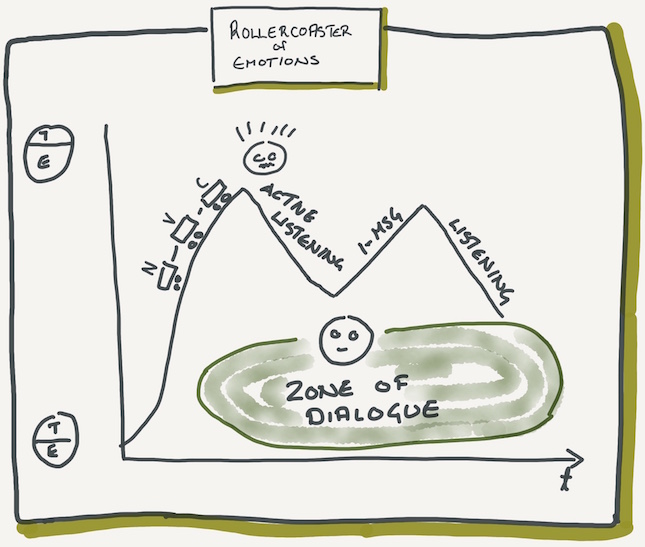 ROLLERCOASTER
OF
EMOTIONS
T
E
C
V
N
ACTIVE
LISTENING
I-MSG
LISTENING
ZONE OF
DIALOGUE
T
E
t